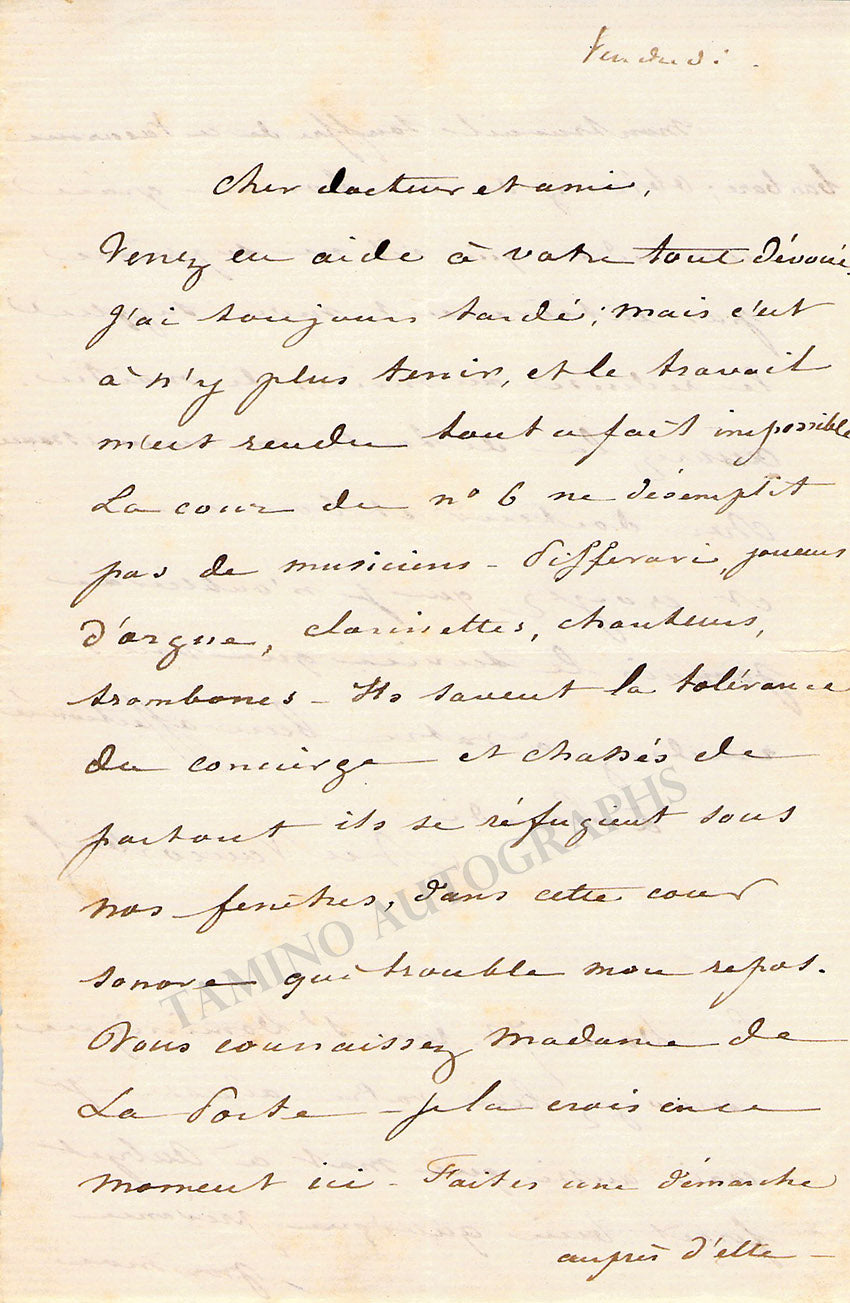 Vendredi.
Cher docteur et ami,
Venez en aide à votre tout dévoué.
J'ai toujours tardé; mais c'est
à n'y plus tenir, et le travail
m'est rendu tout a fait impossible
La cour du nº 6 ne désemplit
pas de musiciens - Pifferari, joueurs
d'orgue, clarinettes, chanteurs,
trombones - Ils savent la tolérance
du concierge et chassés de
partout ils se réfugient sous
nos fenêtres, dans cette cour
sonore qui trouble mon repos.
Vous connaissez Madame de
La Porte - je la crois en ce
moment ici - Faites une démarche
auprès d'elle -
TAMINO AUTOGRAPHS